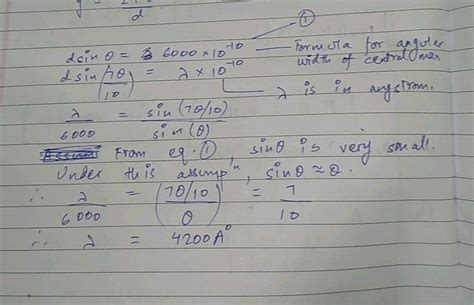 d
①
d sin θ = 6000 × 10⁻¹⁰ — Formula for angular
width of central max
d sin (7θ/10) = λ × 10⁻¹⁰
λ is in angstrom.
λ/6000 = sin (7θ/10)/sin (θ)
From eq. ①, sin θ is very small.
Under this assumpⁿ, sin θ ≈ θ.
∴ λ/6000 = (7θ/10)/θ = 7/10
∴ λ = 4200A°